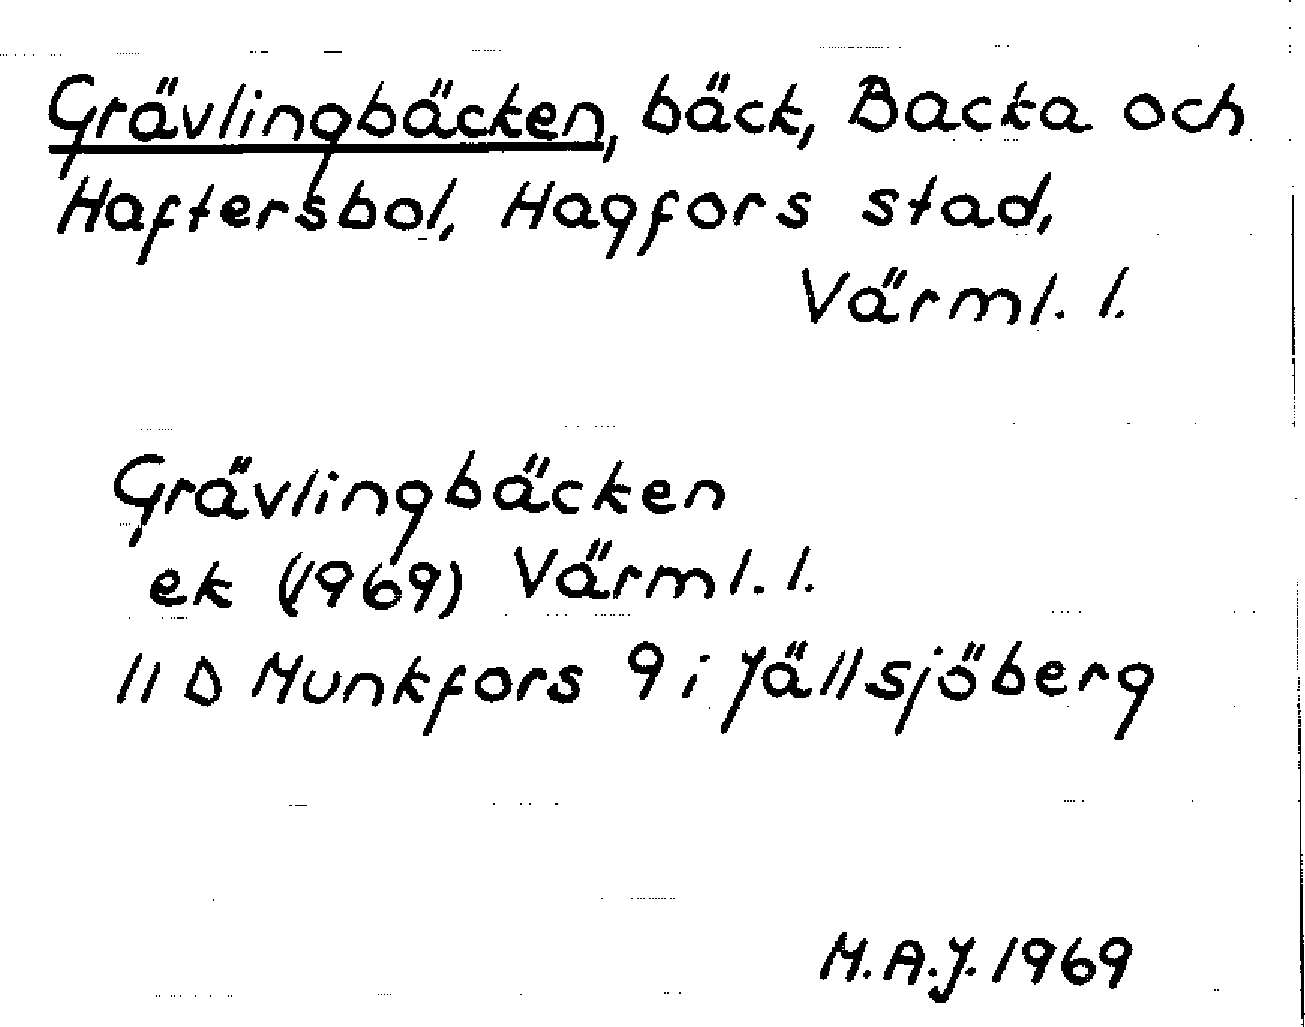 Grävlingbäcken, bäck, Backa och
Haftersbol, Hagfors stad,
Värml. l.
Grävlingbäcken
ek (1969) Värml. l.
11 D Munkfors 9 i Jällsjöberg
M.A.J. 1969